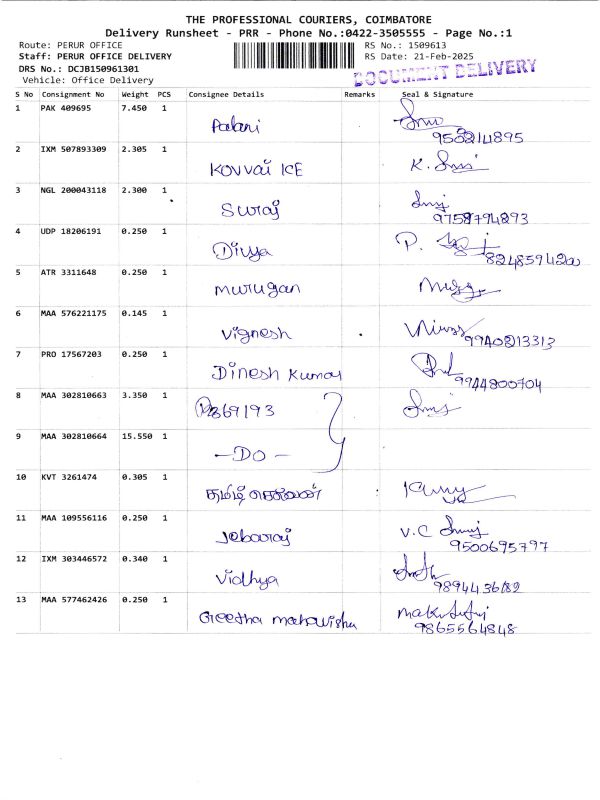 THE PROFESSIONAL COURIERS, COIMBATORE
Delivery Runsheet - PRR - Phone No.:0422-3505555 - Page No.:1
Route: PERUR OFFICE RS No.: 1509613
Staff: PERUR OFFICE DELIVERY RS Date: 21-Feb-2025
DRS No.: DCJB150961301
Vehicle: Office Delivery
DOCUMENT DELIVERY
S No Consignment No Weight PCS Consignee Details Remarks Seal & Signature
1 PAK 409695 7.450 1 Palani
9502114895
2 IXM 507893309 2.305 1 Kovvai ICE K.
3 NGL 200043118 2.300 1 Suraj
9758794893
4 UDP 18206191 0.250 1 Divya P.
5 ATR 3311648 0.250 1 murugan
6 MAA 576221175 0.145 1 Vignesh
7 PRO 17567203 0.250 1 Dinesh Kumar
9944800704
8 MAA 302810663 3.350 1
9 MAA 302810664 15.550 1 -DO-
10 KVT 3261474 0.305 1 தமிழ் செல்வன்
11 MAA 109556116 0.250 1 Jebaraj V.C
9500695797
12 IXM 303446572 0.340 1 Vidhya
13 MAA 577462426 0.250 1 Geetha mahavishu
9865564848